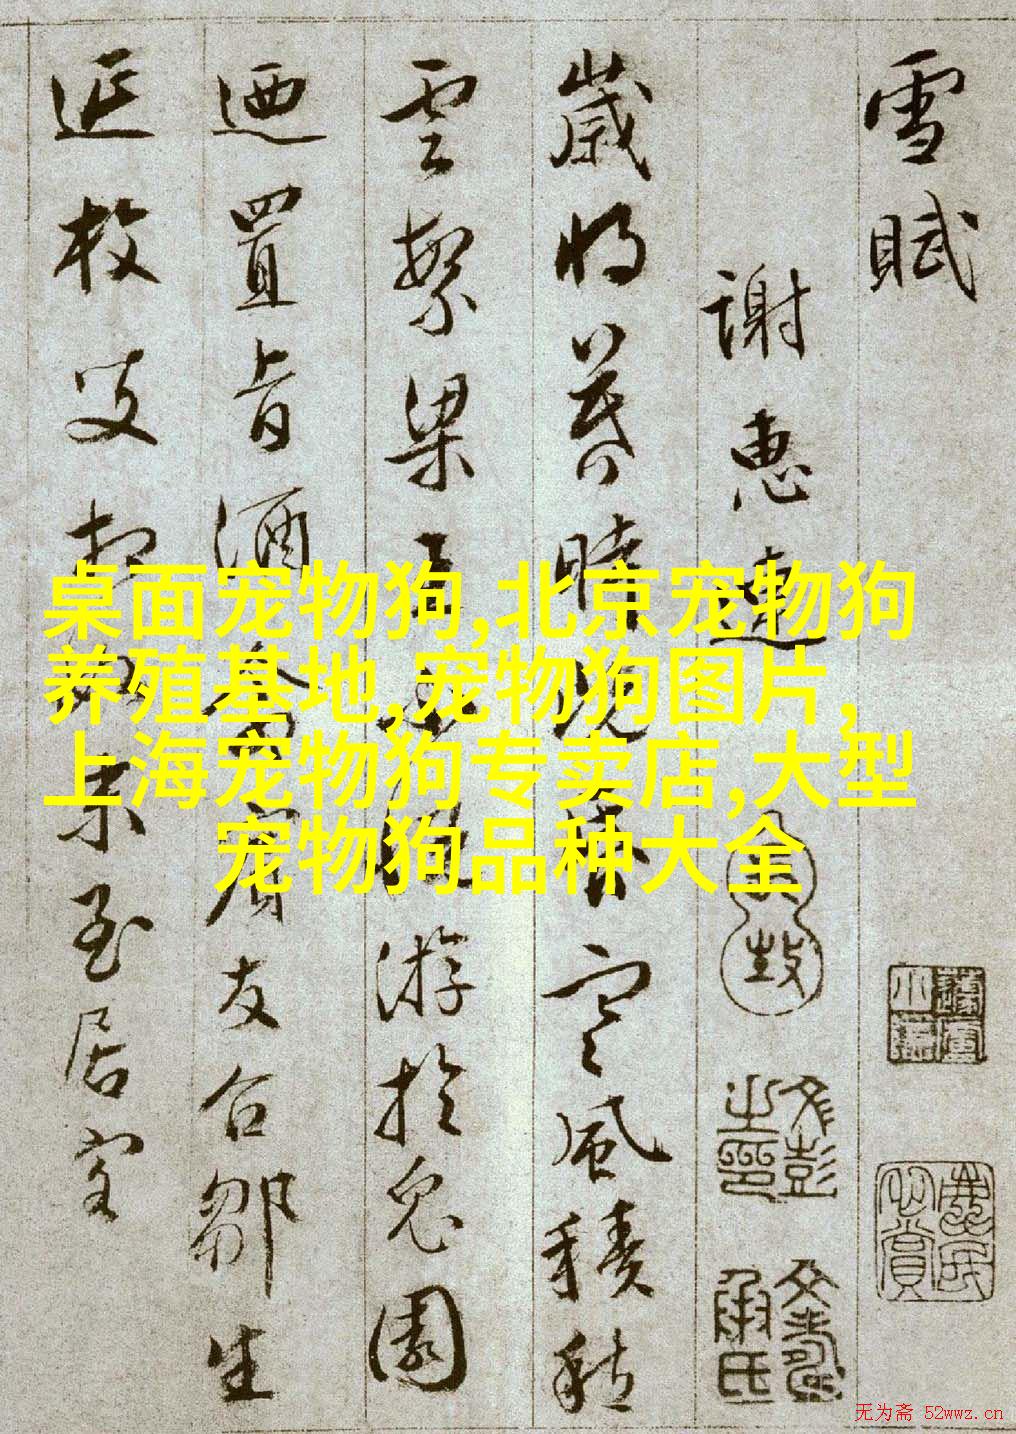 雪賦
謝惠連
歲將暮時既昏寒風積愁
雲繁梁王不悅游於兔園
迺置旨酒命賓友召鄒生
延枚叟相如末至居客
文彭之印
文壽承氏
桌面宠物狗,北京宠物狗
养殖基地,宠物狗图片,
上海宠物狗专卖店,大型
宠物狗品种大全
无为斋 52wwz.cn